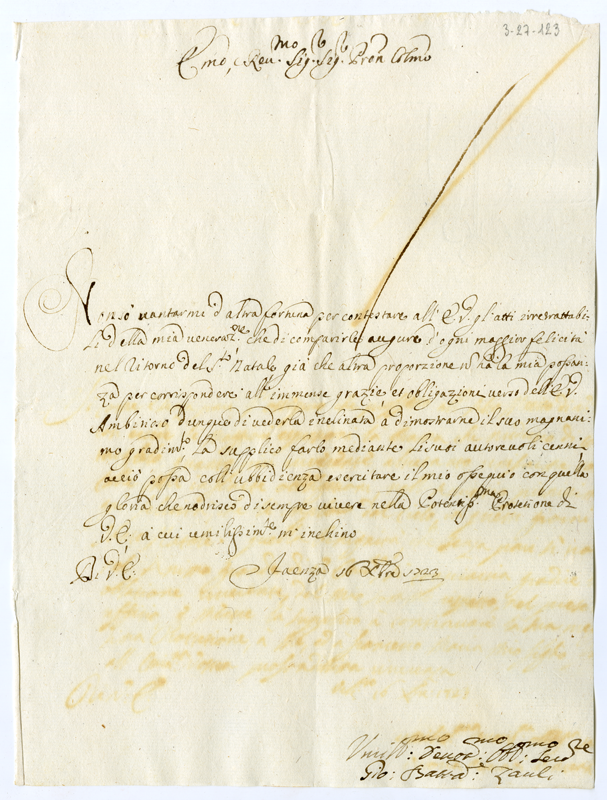 3-27-123
Emo, e Rev.mo Sig.r Sig.r Pron Colmo
Non sò vantarmi d'altra fortuna per contestare all' E.V. gl'atti irrefrattabi=
li della mia veneraz.ne che di comparirle augure d'ogni maggior felicità
nel ritorno del S.to Natale già che altra proporzione n hà la mia possan=
za per corrispondere all' immense grazie et obligazioni verso dell' E.V.
Ambirisco dunque di vederla inclinata à dimostrarne il suo magnani=
mo gradim.to La supplico farlo mediante li suoi autorevoli cenni,
acciò possa coll' ubbidienza esercitare il mio ossequio con quella
gloria che nodrisco di sempre vivere nella Potentiss.ma Protetione di
V.E. à cui umilissim.te m'inchino
Di V.E.
Faenza 16 Xbre 1723
Umiss.mo Devot.mo Obb.mo Ser.re
Gio: Batta Zauli